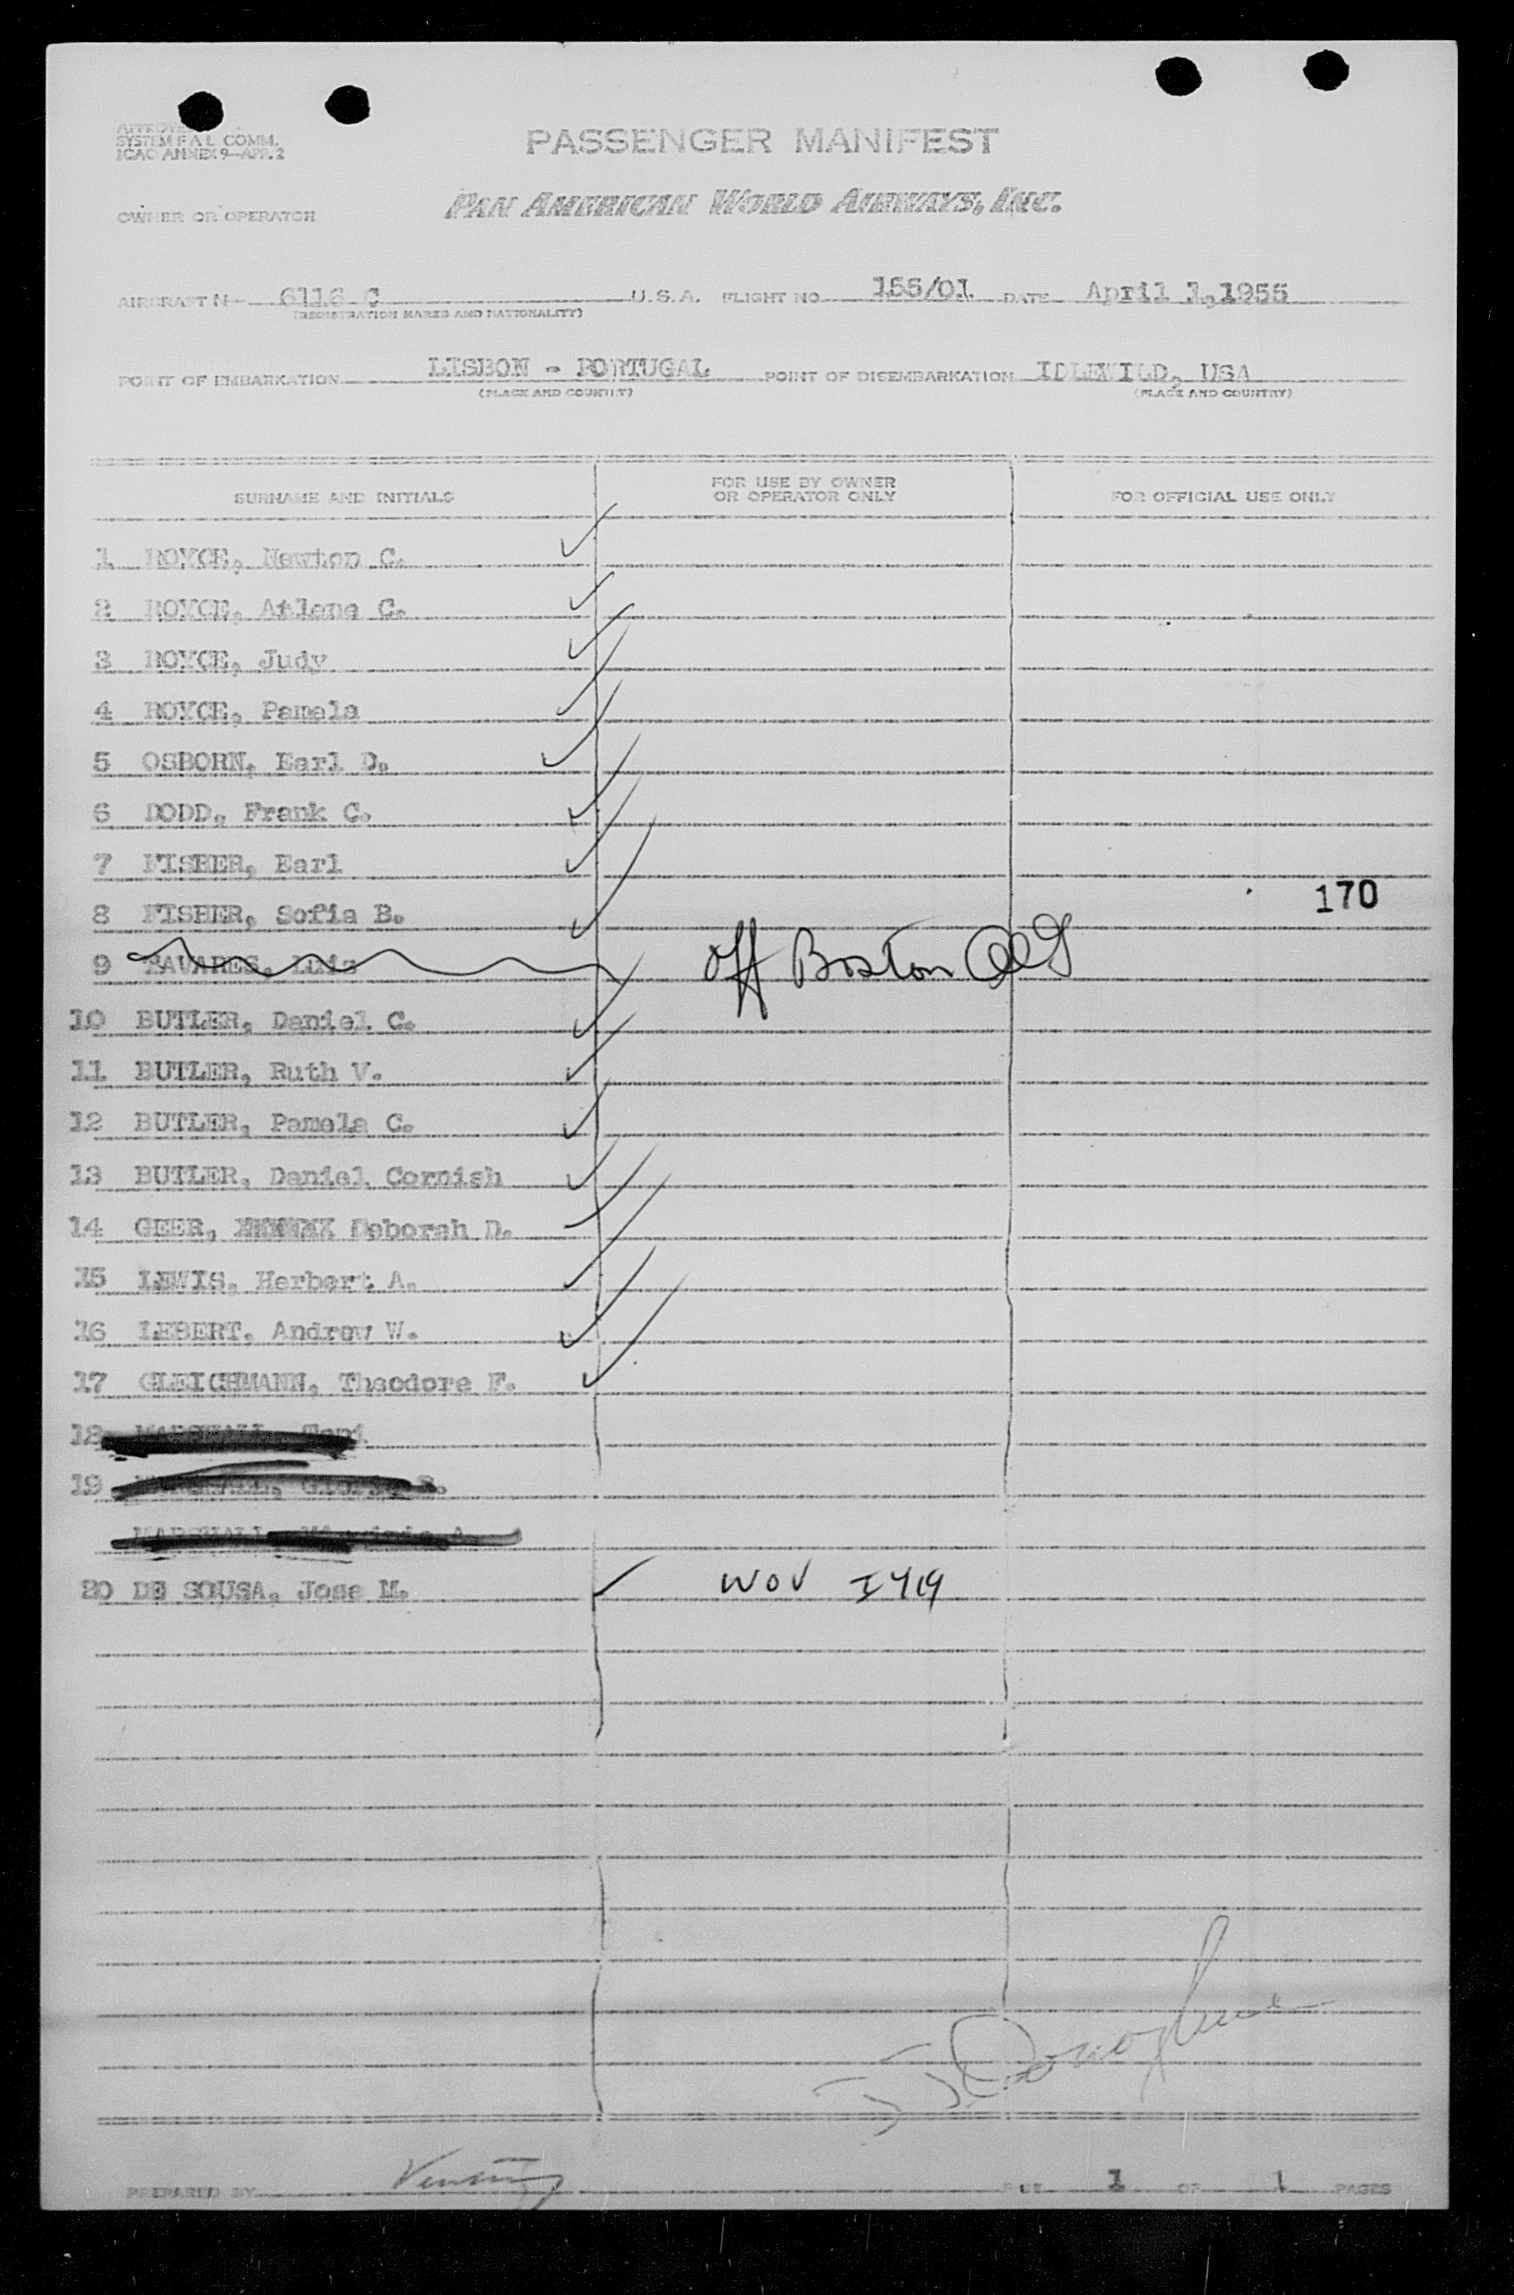 SYSTEM F A L COMM.
ICAO ANNEX 9—APP. 2
PASSENGER MANIFEST
OWNER OR OPERATOR PAN AMERICAN WORLD AIRWAYS, INC.
AIRCRAFT N 6116 C U.S.A. FLIGHT NO. 155/01 DATE April 1, 1955
(REGISTRATION MARKS AND NATIONALITY)
POINT OF EMBARKATION LISBON - PORTUGAL POINT OF DISEMBARKATION IDLEWILD, USA
(PLACE AND COUNTRY) (PLACE AND COUNTRY)
SURNAME AND INITIALS FOR USE BY OWNER OR OPERATOR ONLY FOR OFFICIAL USE ONLY
1 ROYCE, Newton C.
2 ROYCE, Arlene C.
3 ROYCE, Judy
4 ROYCE, Pamela
5 OSBORN, Earl D.
6 DODD, Frank C.
7 FISHER, Earl
8 FISHER, Sofia B. 170
9 TAVARES, Luis off Boston
10 BUTLER, Daniel C.
11 BUTLER, Ruth V.
12 BUTLER, Pamela C.
13 BUTLER, Daniel Cornish
14 GEER, Deborah D.
15 LEWIS, Herbert A.
16 LEBERT, Andrew W.
17 GLEICHMANN, Theodore F.
18 MARSHALL, Toni
19 MARSHALL,
MARSHALL, A.
20 DE SOUSA, Jose M. WOV I419
PREPARED BY 1 OF 1 PAGES